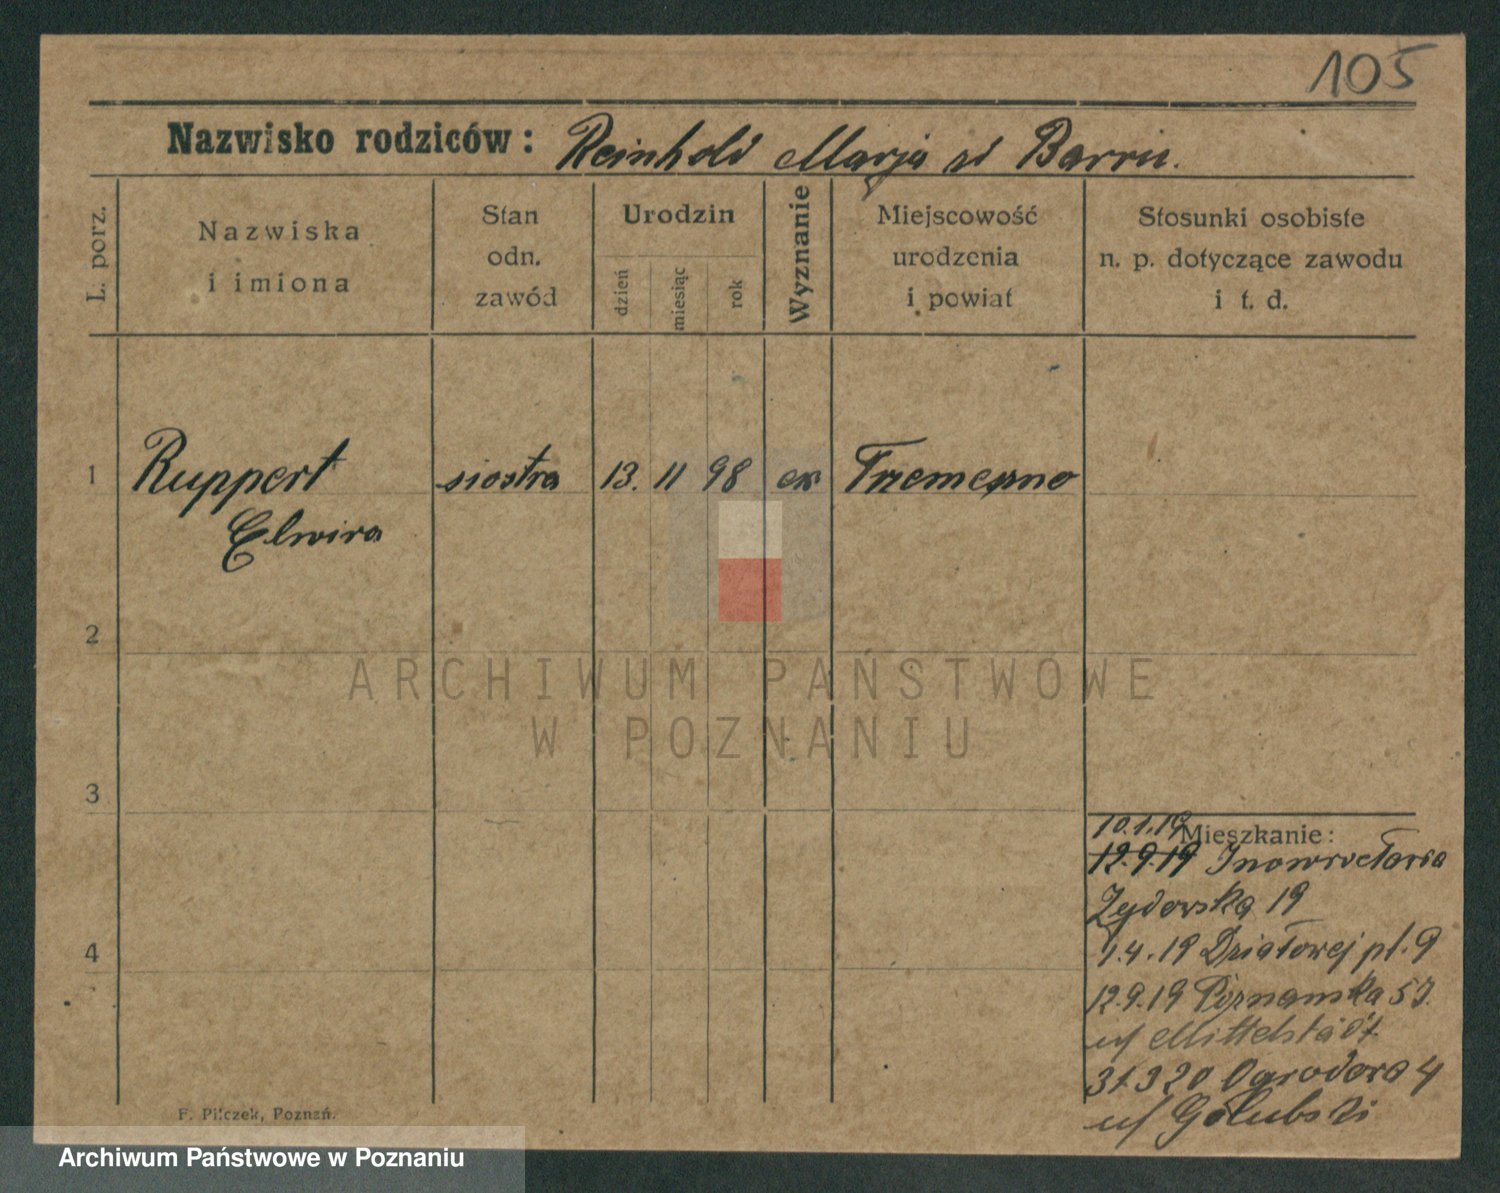 105
Nazwisko rodziców: Reinhold Marja zd Barru.
L. porz.
Nazwiska
i imiona
Stan
odn.
zawód
Urodzin
dzień
miesiąc
rok
Wyznanie
Miejscowość
urodzenia
i powiat
Stosunki osobiste
n. p. dotyczące zawodu
i t. d.
1 Ruppert siostra 13. 11 98 ew Trzemeszno
Elwira
2
ARCHIWUM PAŃSTWOWE
W POZNANIU
3
10.1.19 Mieszkanie:
12.9.19 Inowrocława
Żydowska 19
1.4.19 Działowej pl. 9
12.9.19 Poznańska 57.
u/ Mittelstädt
4
31 3 20 Ogrodowa 4
u/ Golubski
F. Pilczek, Poznań.
Archiwum Państwowe w Poznaniu